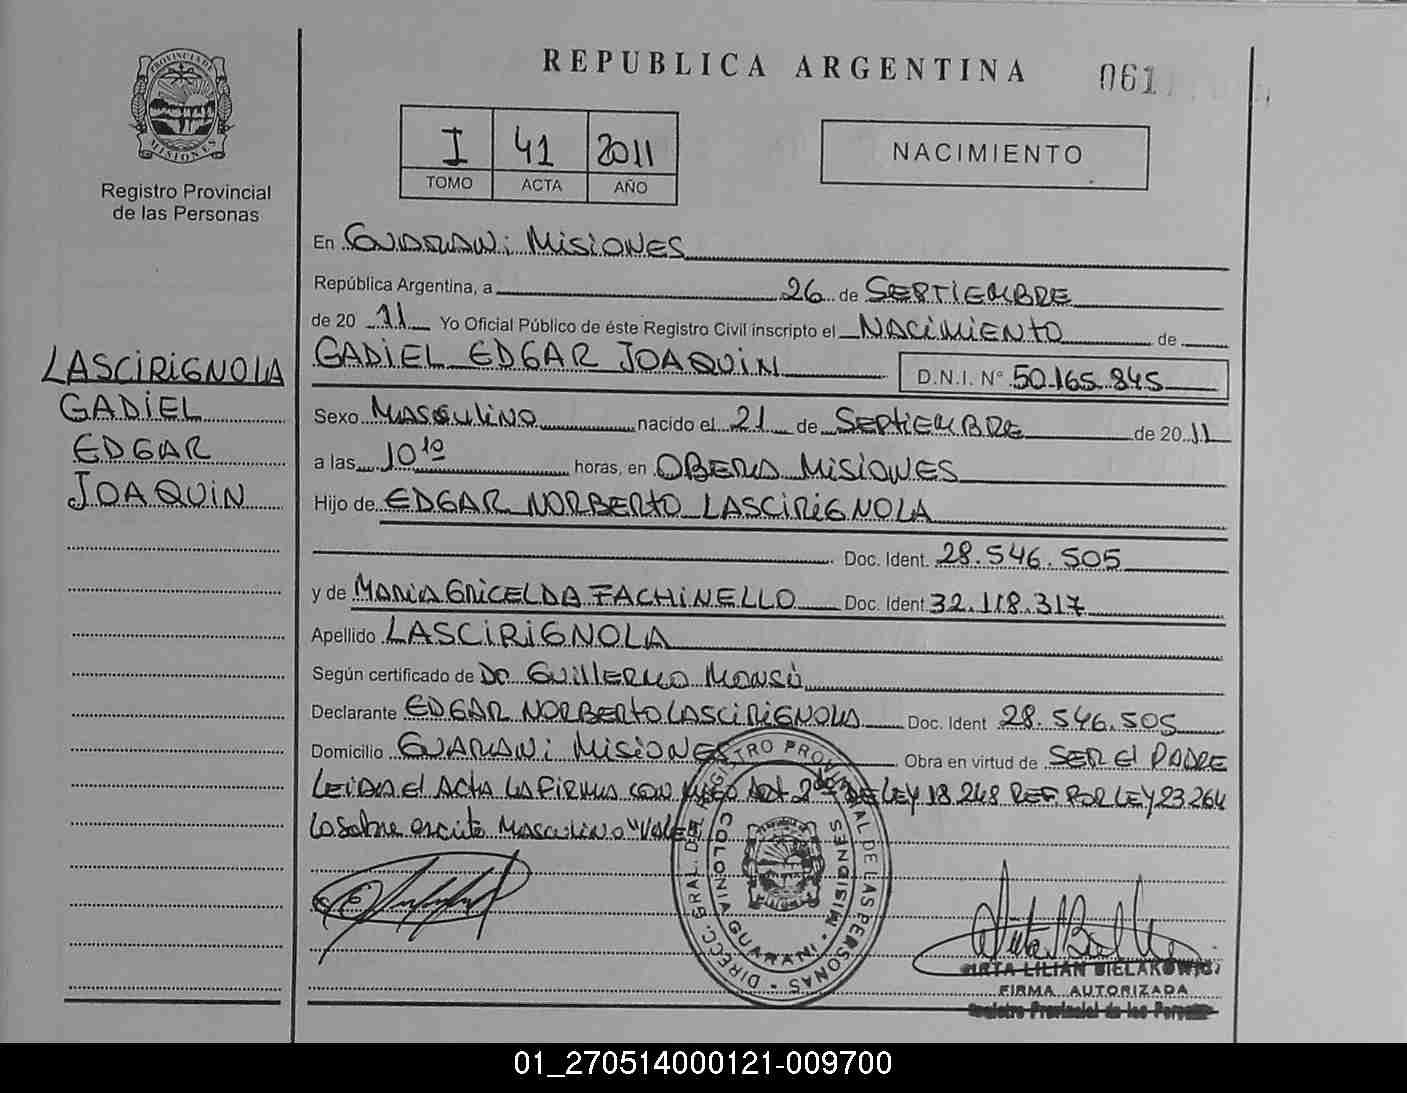 REPUBLICA ARGENTINA
061
PROVINCIA DE MISIONES
Registro Provincial
de las Personas
I 41 2011
TOMO ACTA AÑO
NACIMIENTO
En GUARANI MISIONES
República Argentina, a 26 de SEPTIEMBRE
de 20 11 Yo Oficial Público de éste Registro Civil inscripto el NACIMIENTO de
GADIEL EDGAR JOAQUIN D.N.I. N° 50.165.845
LASCIRIGNOLA
GADIEL
EDGAR
JOAQUIN
Sexo MASCULINO nacido el 21 de SEPTIEMBRE de 20 11
a las 10 10 horas, en OBERA MISIONES
Hijo de EDGAR NORBERTO LASCIRIGNOLA
Doc. Ident. 28.546.505
y de MARIA GRICELDA FACHINELLO Doc. Ident 32.118.317
Apellido LASCIRIGNOLA
Según certificado de DR GUILLERMO
Declarante EDGAR NORBERTO LASCIRIGNOLA Doc. Ident 28.546.505
Domicilio GUARANI MISIONES Obra en virtud de SER El PADRE
LEIDA El ACTA LA FIRMA CON MIGO Art 2do DE LEY 18 248 REF. POR LEY 23 264
Lo sobre escrito MASCULINO "VALE"
DIRECC. GRAL. DEL REGISTRO PROVINCIAL DE LAS PERSONAS
COLONIA GUARANI - MISIONES
MIRTA LILIAN BIELAKOWICZ
FIRMA AUTORIZADA
Registro Provincial de las Personas
01_270514000121-009700